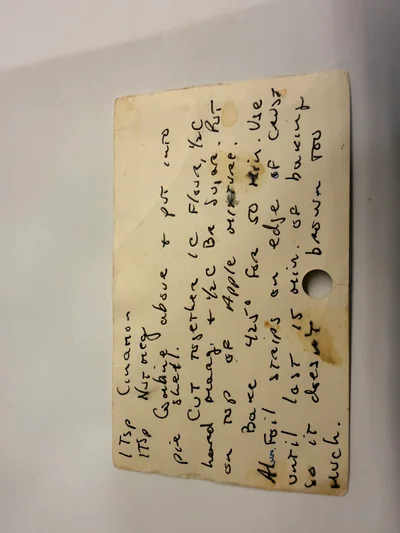 1 Tsp Cinamon
1 Tsp Nutmeg
Combine above + put into
pie shell.
Cut together 1C Flour, 1/2C
hard marg. + 1/2C Br Sugar. Put
on top of Apple mixture.
Bake 425° for 50 min. Use
Alum. Foil strips on edge of crust
until last 15 min. of baking
so it doesn't brown too
much.